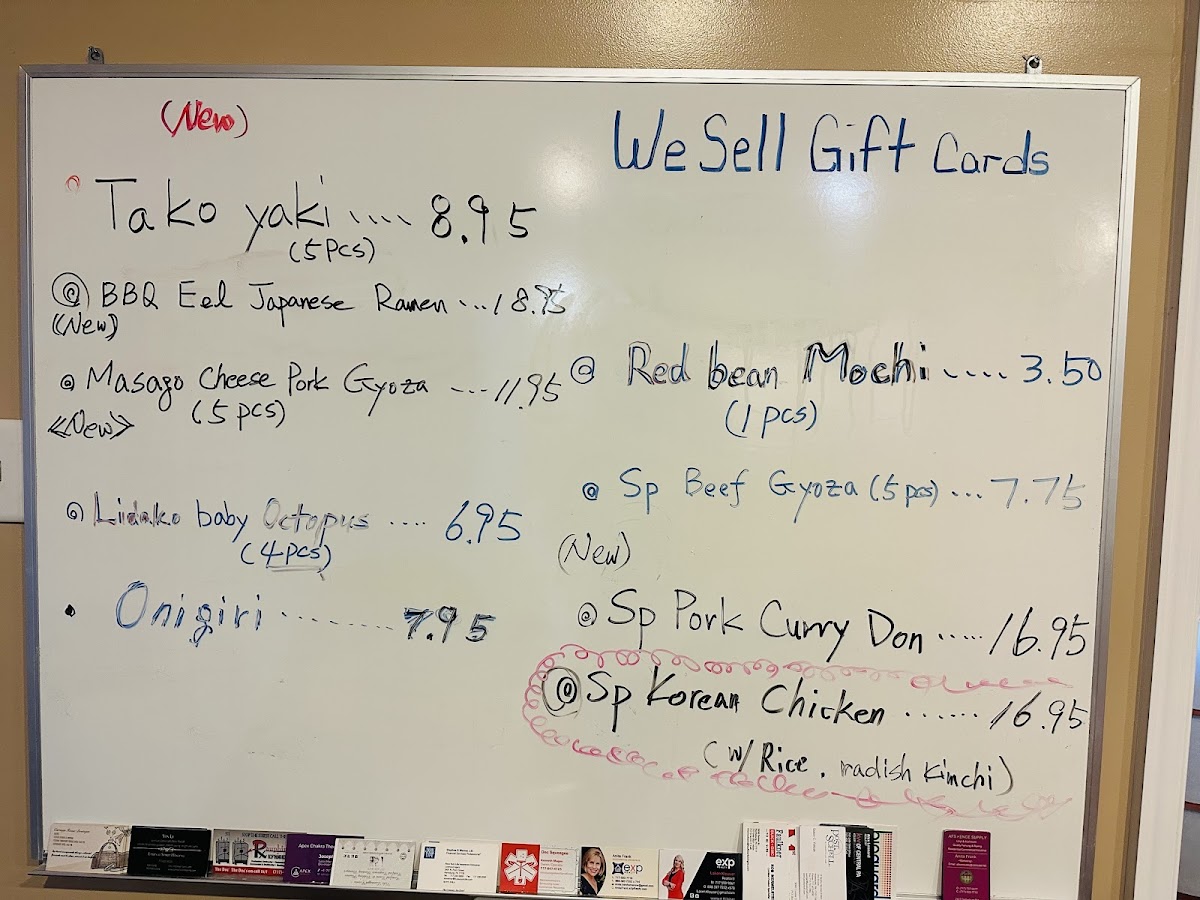 (New)
We Sell Gift Cards
Tako yaki .... 8.95
(5 pcs)
BBQ Eel Japanese Ramen ...18.95
(New)
Masago Cheese Pork Gyoza ...11.95
(5 pcs)
<<New>>
Lidako baby Octopus .... 6.95
(4 pcs)
Onigiri .......... 7.95
Red bean Mochi ..... 3.50
(1 pcs)
Sp Beef Gyoza (5 pcs) ... 7.75
(New)
Sp Pork Curry Don ..... 16.95
Sp Korean Chicken ....... 16.95
(w/ Rice, radish kimchi)
exp
exp